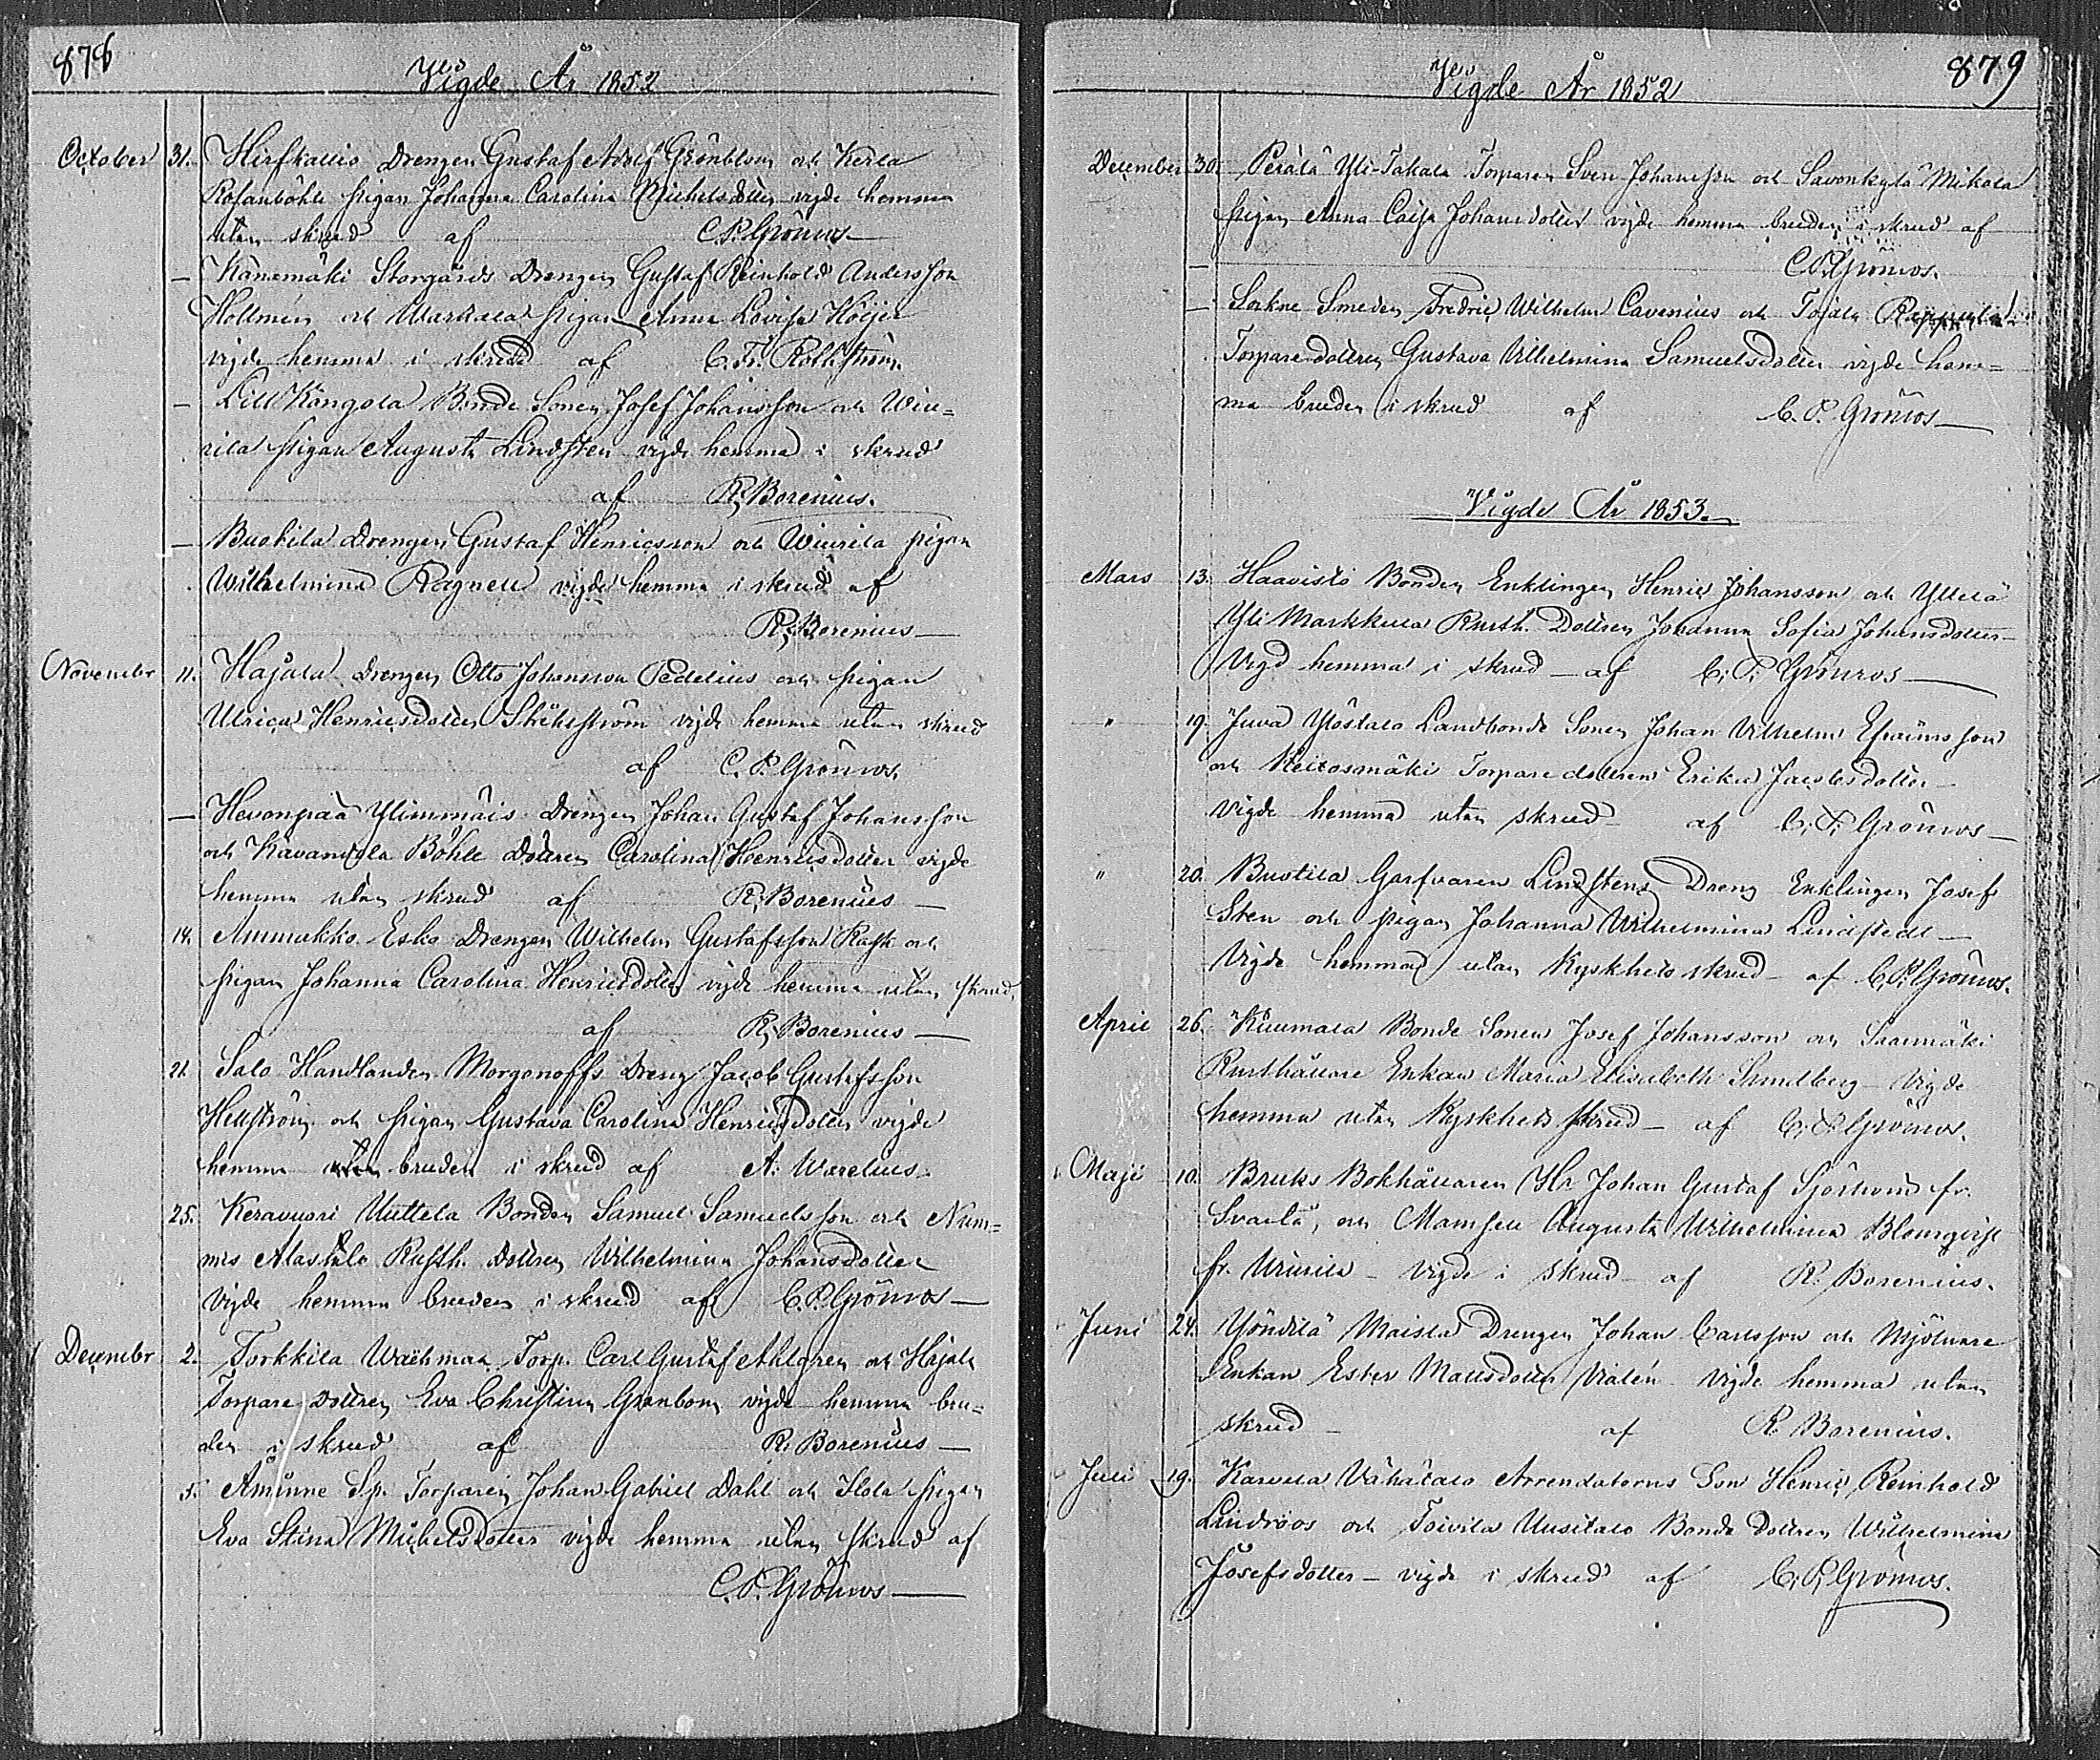 878
Vigde År 1852
October 31. Hirskallio Drengen Gustaf Adolf Grönblom och Kerla
Rosanböhle pigan Johanna Carolina Michelsdotter vigde hemma
utan skrud af C.P. Grönros
— Kanamäki Storgårds Drengen Gustaf Reinhold Andersson
Hollmén och Warkala pigan Anna Lovisa Höijer
vigde hemma i skrud af C. Fr. Rothström.
— Lill Kangola Bonde Sonen Josef Johansson och Wiu=
rila pigan Augusta Lindsten vigde hemma i skrud
af R. Borenius.
— Buotila Drengen Gustaf Henricsson och Wiurila pigan
Wilhelmina Ragnell vigde hemma i skrud af
R. Borenius —
Novembr 11. Hajala Drengen Otto Johansson Pedelius och pigan
Ulrica Henricsdotter vigde hemma utan skrud
af C.P. Grönros.
— Hevonpää Ylimmäis Drengen Johan Gustaf Johansson
och Kavankylä Böhle Dottren Carolina Henricsdotter vigde
hemma utan skrud af R. Borenius —
14. Ammakko Esko Drengen Wilhelm Gustafsson Rask och
pigan Johanna Carolina Henricsdotter vigde hemma utan skrud,
af R. Borenius —
21. Salo Handlanden Morgonoffs Dreng Jacob Gustafsson
Hellström och pigan Gustava Carolina Henricsdotter vigde
hemma bruden i skrud af A. Warelius.
25. Keravuori Uuttela Bonden Samuel Samuelsson och Num=
mis Alastalo Rusth. Dottren Wilhelmina Johansdotter
vigde hemma bruden i skrud af C.P. Grönros —
Decembr 2. Torkkila Torp. Carl Gustaf Ahlgren och Hajala
Torpare Dottren Eva Christina Granbom vigde hemma bru=
den i skrud af R. Borenius —
5. Åminne Sp. Torparen Johan Gabriel Dahl och Isola pigan
Eva Stina Michelsdotter vigde hemma utan skrud af
C.P. Grönros —
Vigde År 1852
879
December 30. Perälä Yli-Takala Torparen Sven Johansson och Savonkylä Mikola
pigan Anna Caisa Johansdotter vigde hemma bruden i skrud af
C.P. Grönros.
— Sockne Smeden Fredric Wilhelm Cavenius och Tojala
Torpare dottren Gustava Vilhelmina Samuelsdotter vigde hem=
ma bruden i skrud af C.P. Grönros —
Vigde År 1853.
Mars 13. Haavisto Bonden Enklingen Henric Johansson och Ylhelä
Yli Markkula Rusth. Dottren Johanna Sofia Johansdotter —
Vigd hemma i skrud — af C.P. Grönros —
" 19. Juva Ylöstalo Landbonde Sonen Johan Vilhelm Efraimsson
och Keitosmäki Torpare dottren Erika Jacobsdotter —
vigde hemma utan skrud — af C.P. Grönros —
" 20. Buotila Garfvaren Lindstens Dreng Enklingen Josef
Sten och pigan Johanna Wilhelmina Lindstedt —
Vigde hemma utan Kyskhets skrud — af C.P. Grönros.
April 26. Kuumala Bonde Sonen Josef Johansson och Saarmäki
Rusthållare Enkan Maria Elisabeth Sundberg — Vigde
hemma utan Kyskhets skrud — af C.P. Grönros.
Maji 10. Bruks Bokhållaren Hr Johan Gustaf Sjöstrand fr.
Svartå, och Mamsell Augusta Wilhelmina Blomqvist
fr. Wiurila — Vigde i skrud — af R. Borenius.
Juni 24. Yöntilä Maisla Drengen Johan Carlsson och Mjölnare
Enkan Ester Mattsdotter Vialén vigde hemma utan
skrud — af R. Borenius.
Juli 19. Karvela Vähätalo Arrendatorns Son Henric Reinhold
Lindroos och Toivila Uusitalo Bonde Dottren Wilhelmina
Josefsdotter — vigde i skrud af C.P. Grönros.